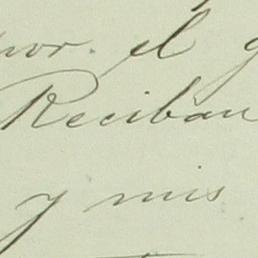 por el
Reciban
y mis